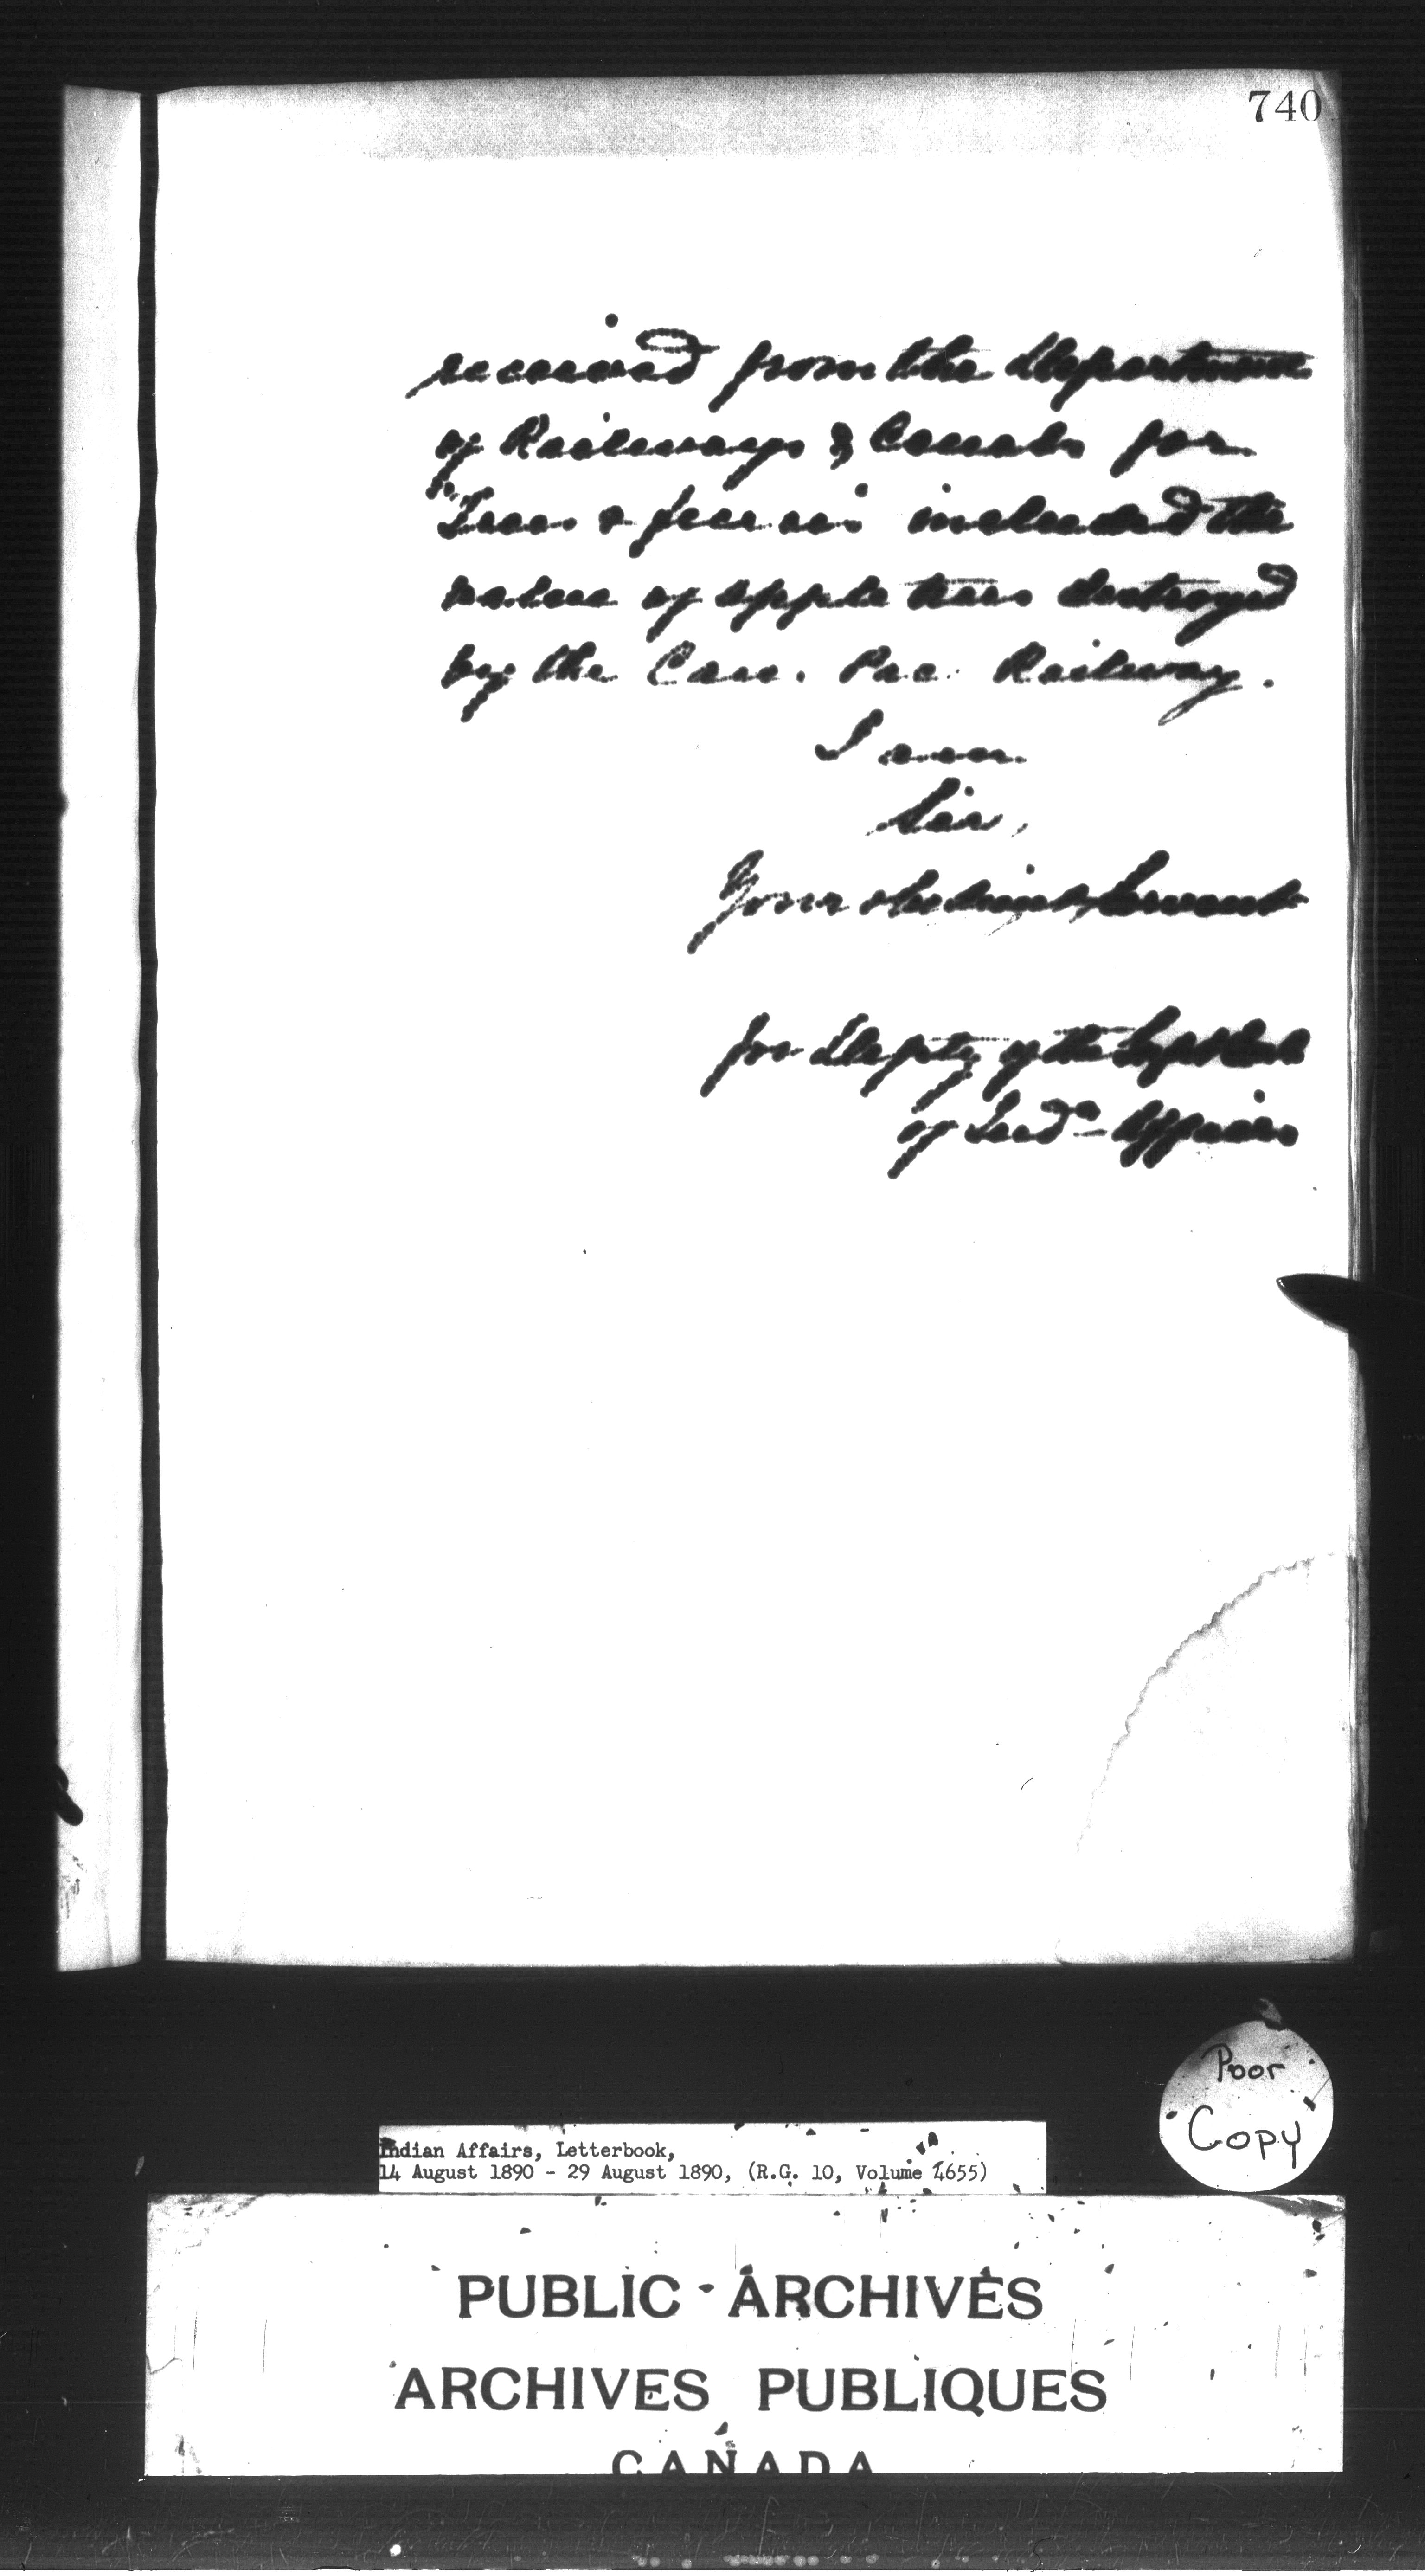 740
received from the Department
of Railways & Canals for
"Trees & fences" included the
value of apple trees destroyed
by the Can. Pac. Railway.
I am
Sir,
Your obedient Servant
for Deputy of the Supt Genl
of Indn Affairs
Poor
Copy
Indian Affairs, Letterbook,
14 August 1890 - 29 August 1890, (R.G. 10, Volume 4655)
PUBLIC ARCHIVES
ARCHIVES PUBLIQUES
CANADA